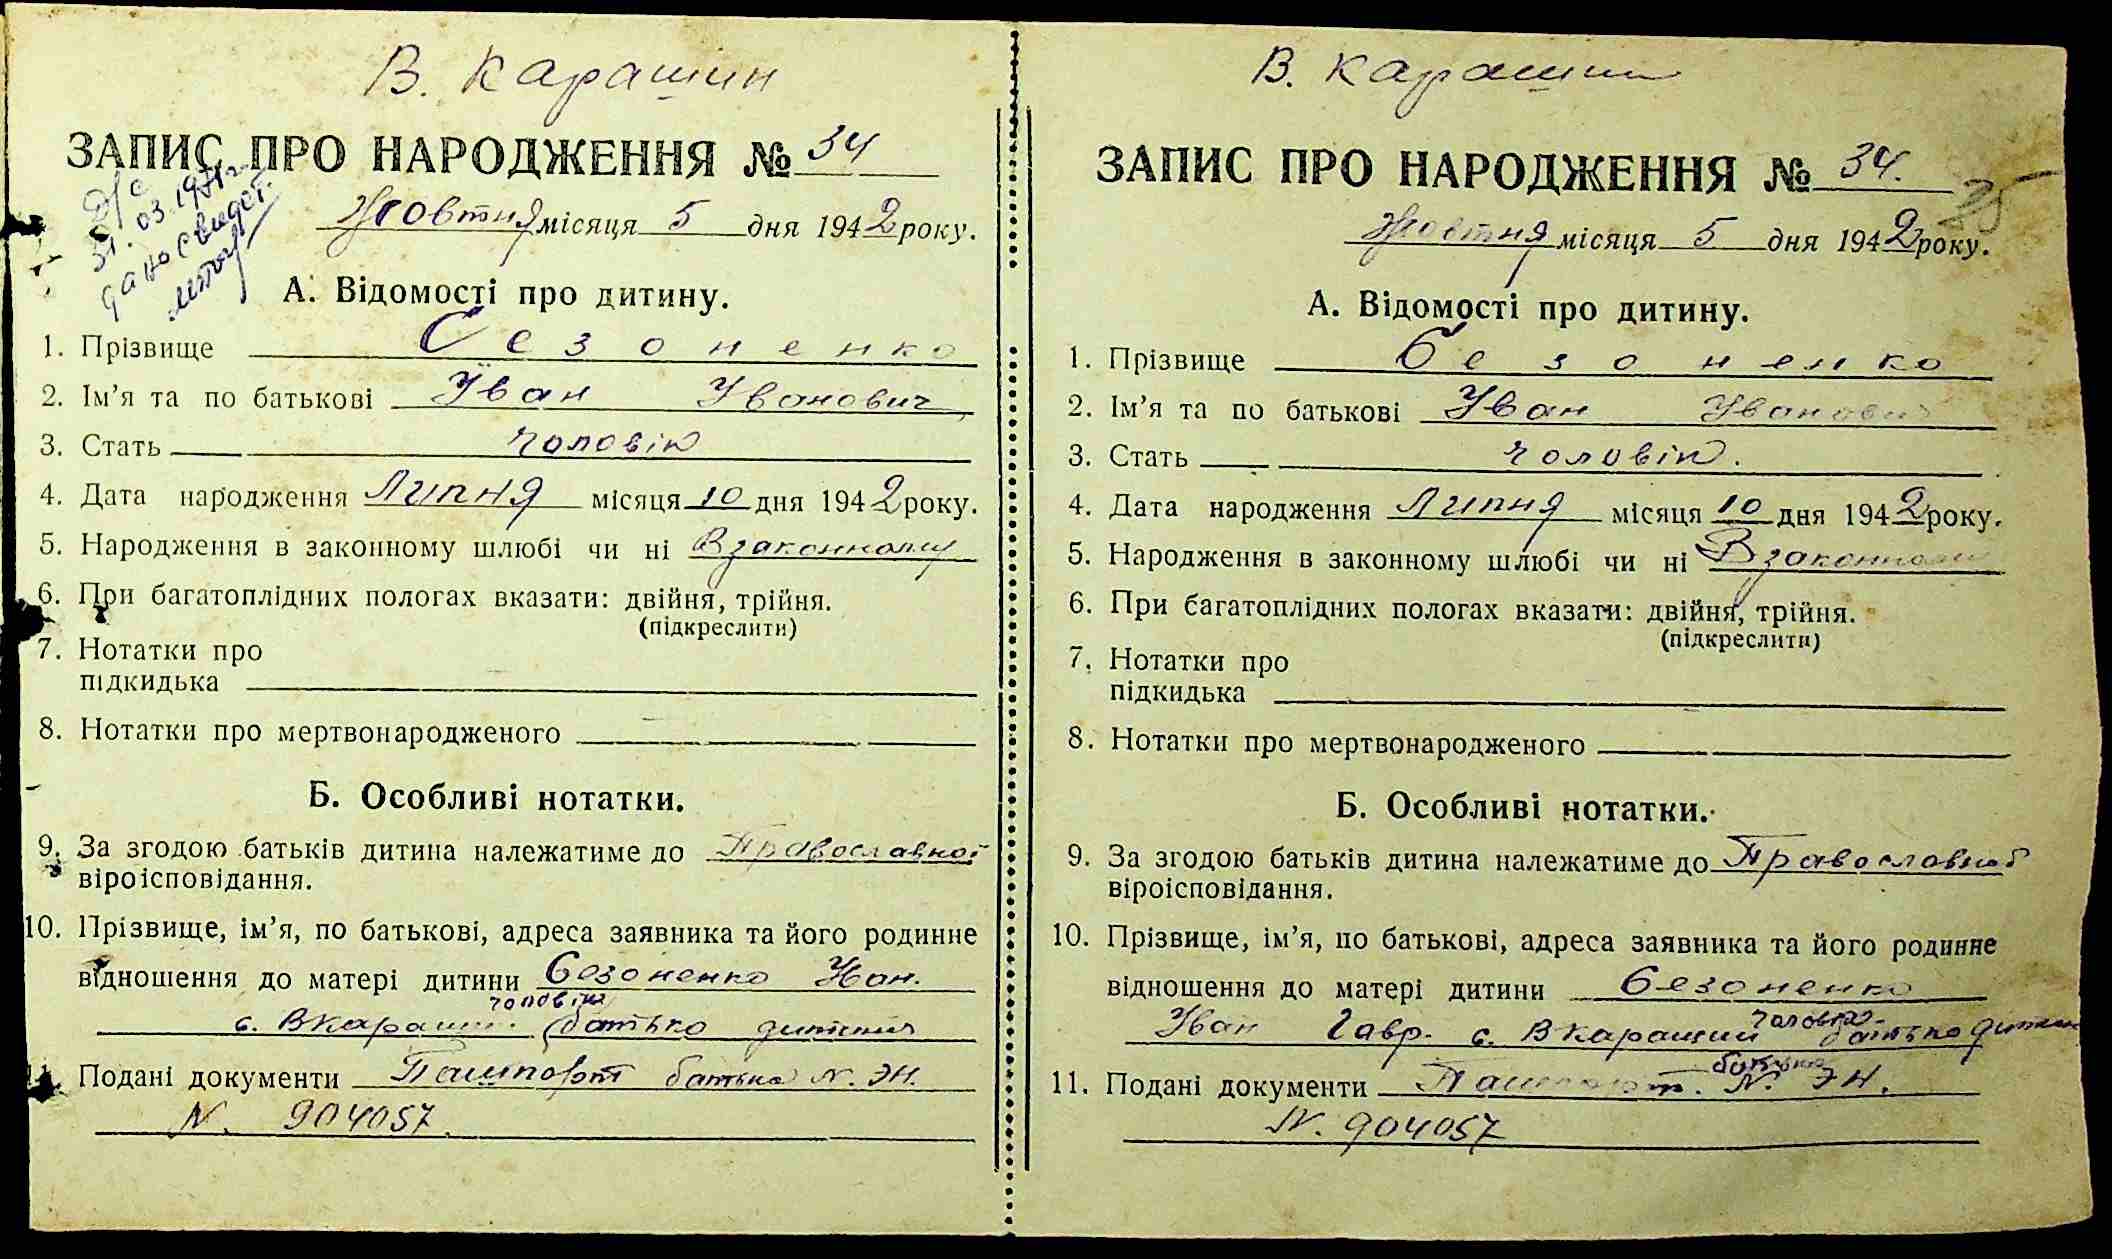 В. Карашин
ЗАПИС ПРО НАРОДЖЕННЯ № 34
Д/с
31.03.1971г.
дано свидет.
Жовтня місяця 5 дня 1942 року.
А. Відомості про дитину.
1. Прізвище Безоненко
2. Ім’я та по батькові Уван Уванович
3. Стать чоловік
4. Дата народження Липня місяця 10 дня 1942 року.
5. Народження в законному шлюбі чи ні Взаконному
6. При багатоплідних пологах вказати: двійня, трійня.
(підкреслити)
7. Нотатки про
підкидька
8. Нотатки про мертвонародженого
Б. Особливі нотатки.
9. За згодою батьків дитина належатиме до Православної
віроісповідання.
10. Прізвище, ім’я, по батькові, адреса заявника та його родинне
відношення до матері дитини Безоненко
чоловік
с. ВКарашин батько дитини
11. Подані документи Пашпорт батька N. ЭН.
N. 904057
В. Карашин
ЗАПИС ПРО НАРОДЖЕННЯ № 34.
25
Жовтня місяця 5 дня 1942 року.
А. Відомості про дитину.
1. Прізвище Безоненко
2. Ім’я та по батькові Уван Уванович
3. Стать чоловік.
4. Дата народження Липня місяця 10 дня 1942 року.
5. Народження в законному шлюбі чи ні Взаконному
6. При багатоплідних пологах вказати: двійня, трійня.
(підкреслити)
7. Нотатки про
підкидька
8. Нотатки про мертвонародженого
Б. Особливі нотатки.
9. За згодою батьків дитина належатиме до Православної
віроісповідання.
10. Прізвище, ім’я, по батькові, адреса заявника та його родинне
відношення до матері дитини Безоненко
чоловік
Уван Гавр. с. ВКаращин батько дитини
батька
11. Подані документи Пашпорт. N. ЭН.
N. 904057